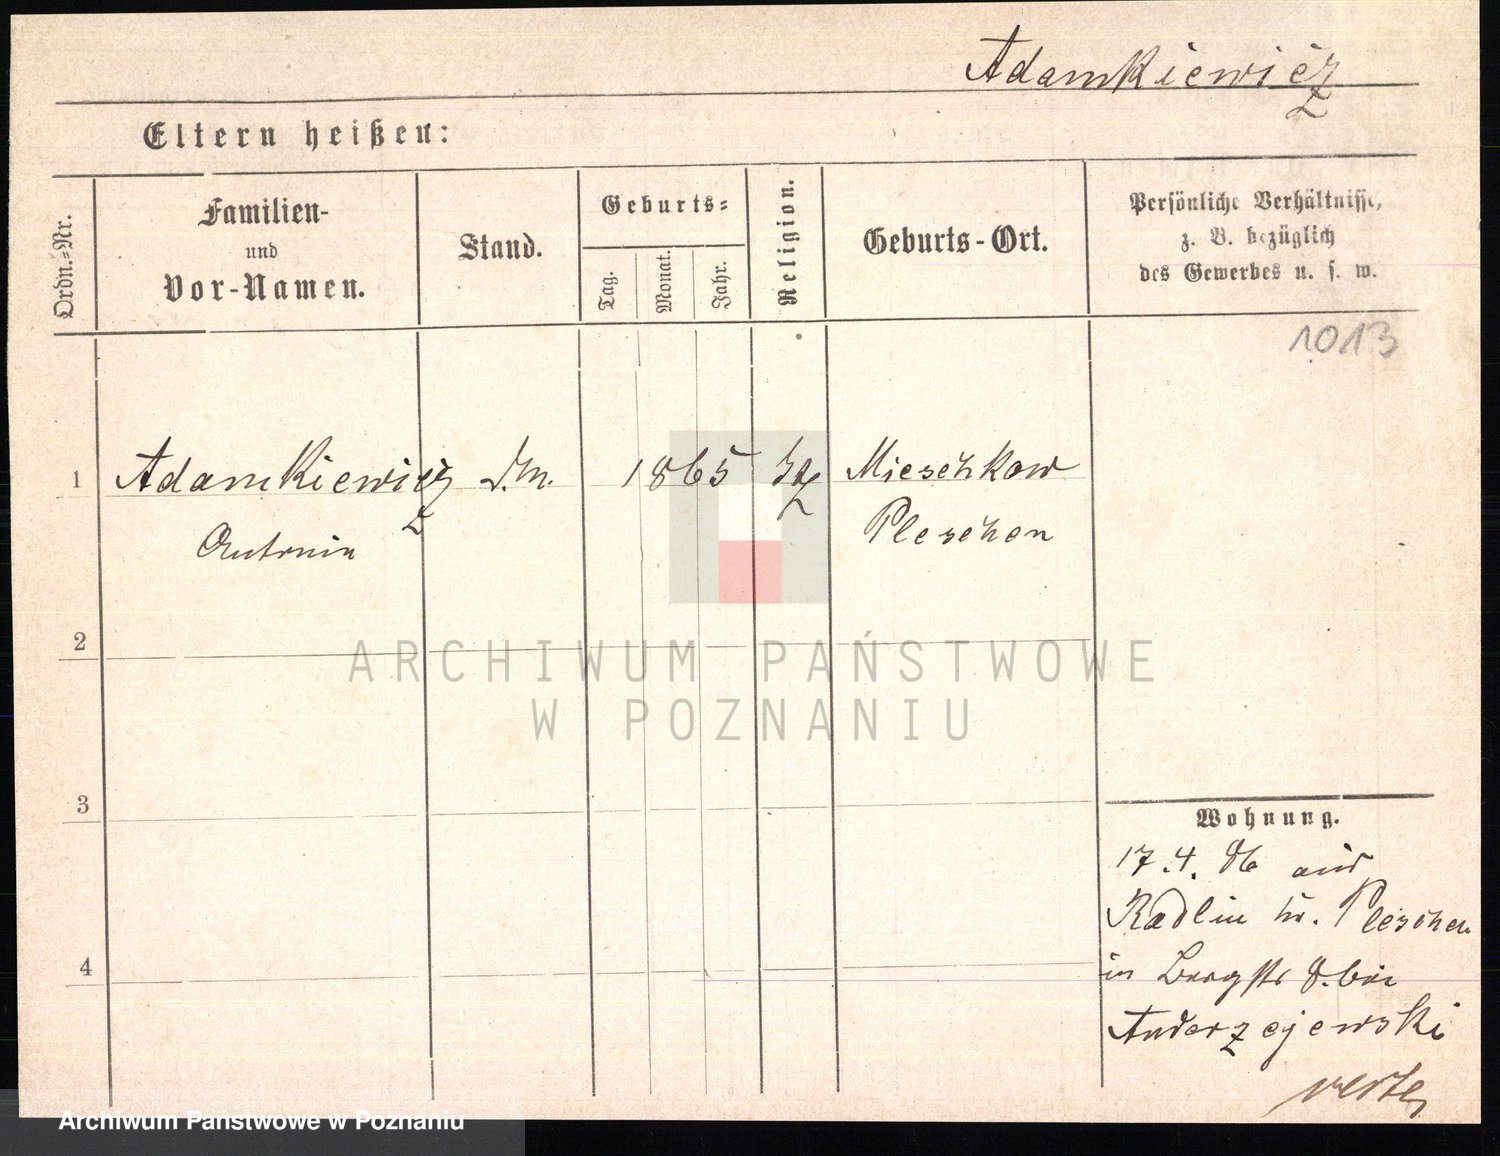 Adamkiewicz
Eltern heißen:
Ordn.-Nr.
Familien-
und
Vor-Namen.
Stand.
Geburts-
Tag.
Monat.
Jahr.
Religion.
Geburts-Ort.
Persönliche Verhältnisse,
z. B. bezüglich
des Gewerbes u. s. w.
1013
1 Adamkiewicz 1865 Mieschkow
Antonia Pleschen
2
ARCHIWUM PAŃSTWOWE
W POZNANIU
3
Wohnung.
17.4.86 aus
Radlin Kr. Pleschen
4
in Bergstr 8. bei
Anderzejewski
verte
Archiwum Państwowe w Poznaniu